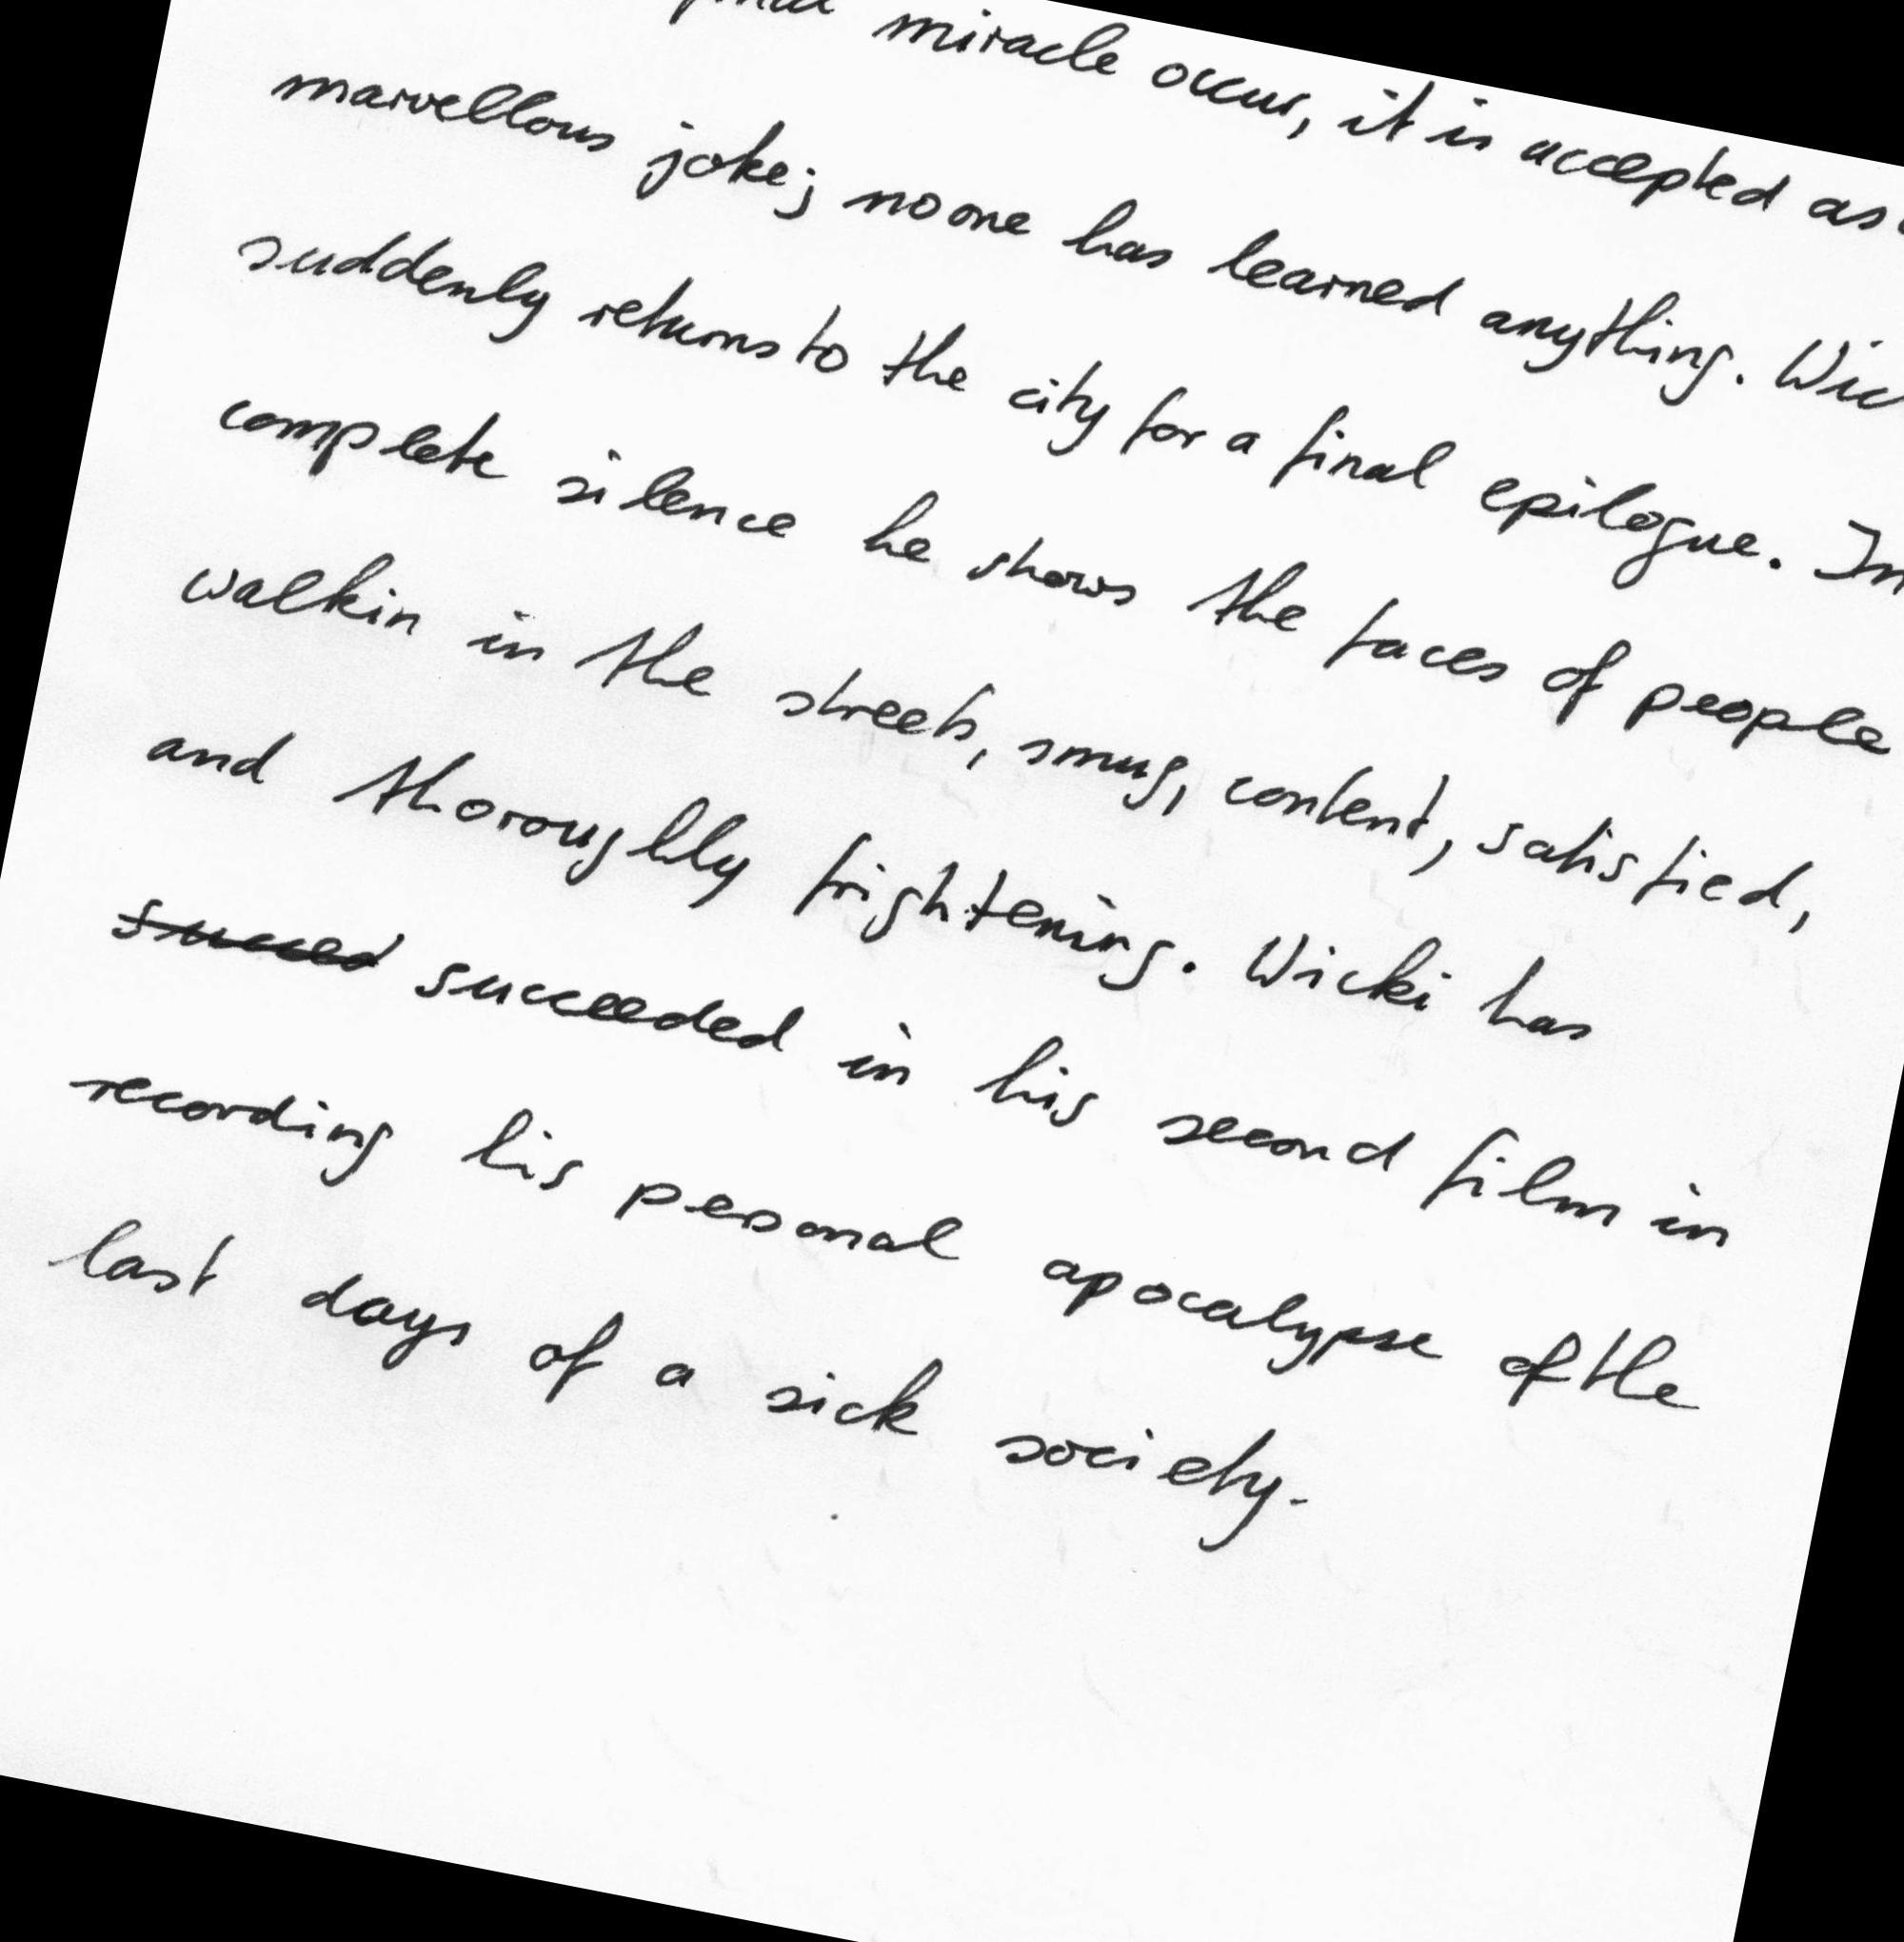 miracle occurs, it is accepted as a
marvellous joke; no one has learned anything.
suddenly returns to the city for a final epilogue. In
complete silence he shows the faces of people
walkin in the streets, smug, content, satisfied,
and thoroughly frightening. Wicki has
succeeded in his second film in
recording his pesonal apocalypse of the
last days of a sick society.